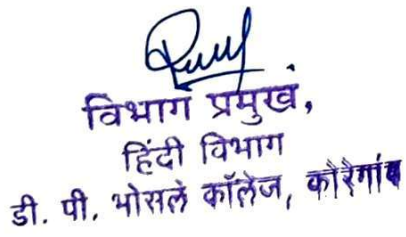 विभाग प्रमुख,
हिंदी विभाग
डी. पी. भोसले कॉलेज, कोरेगांव